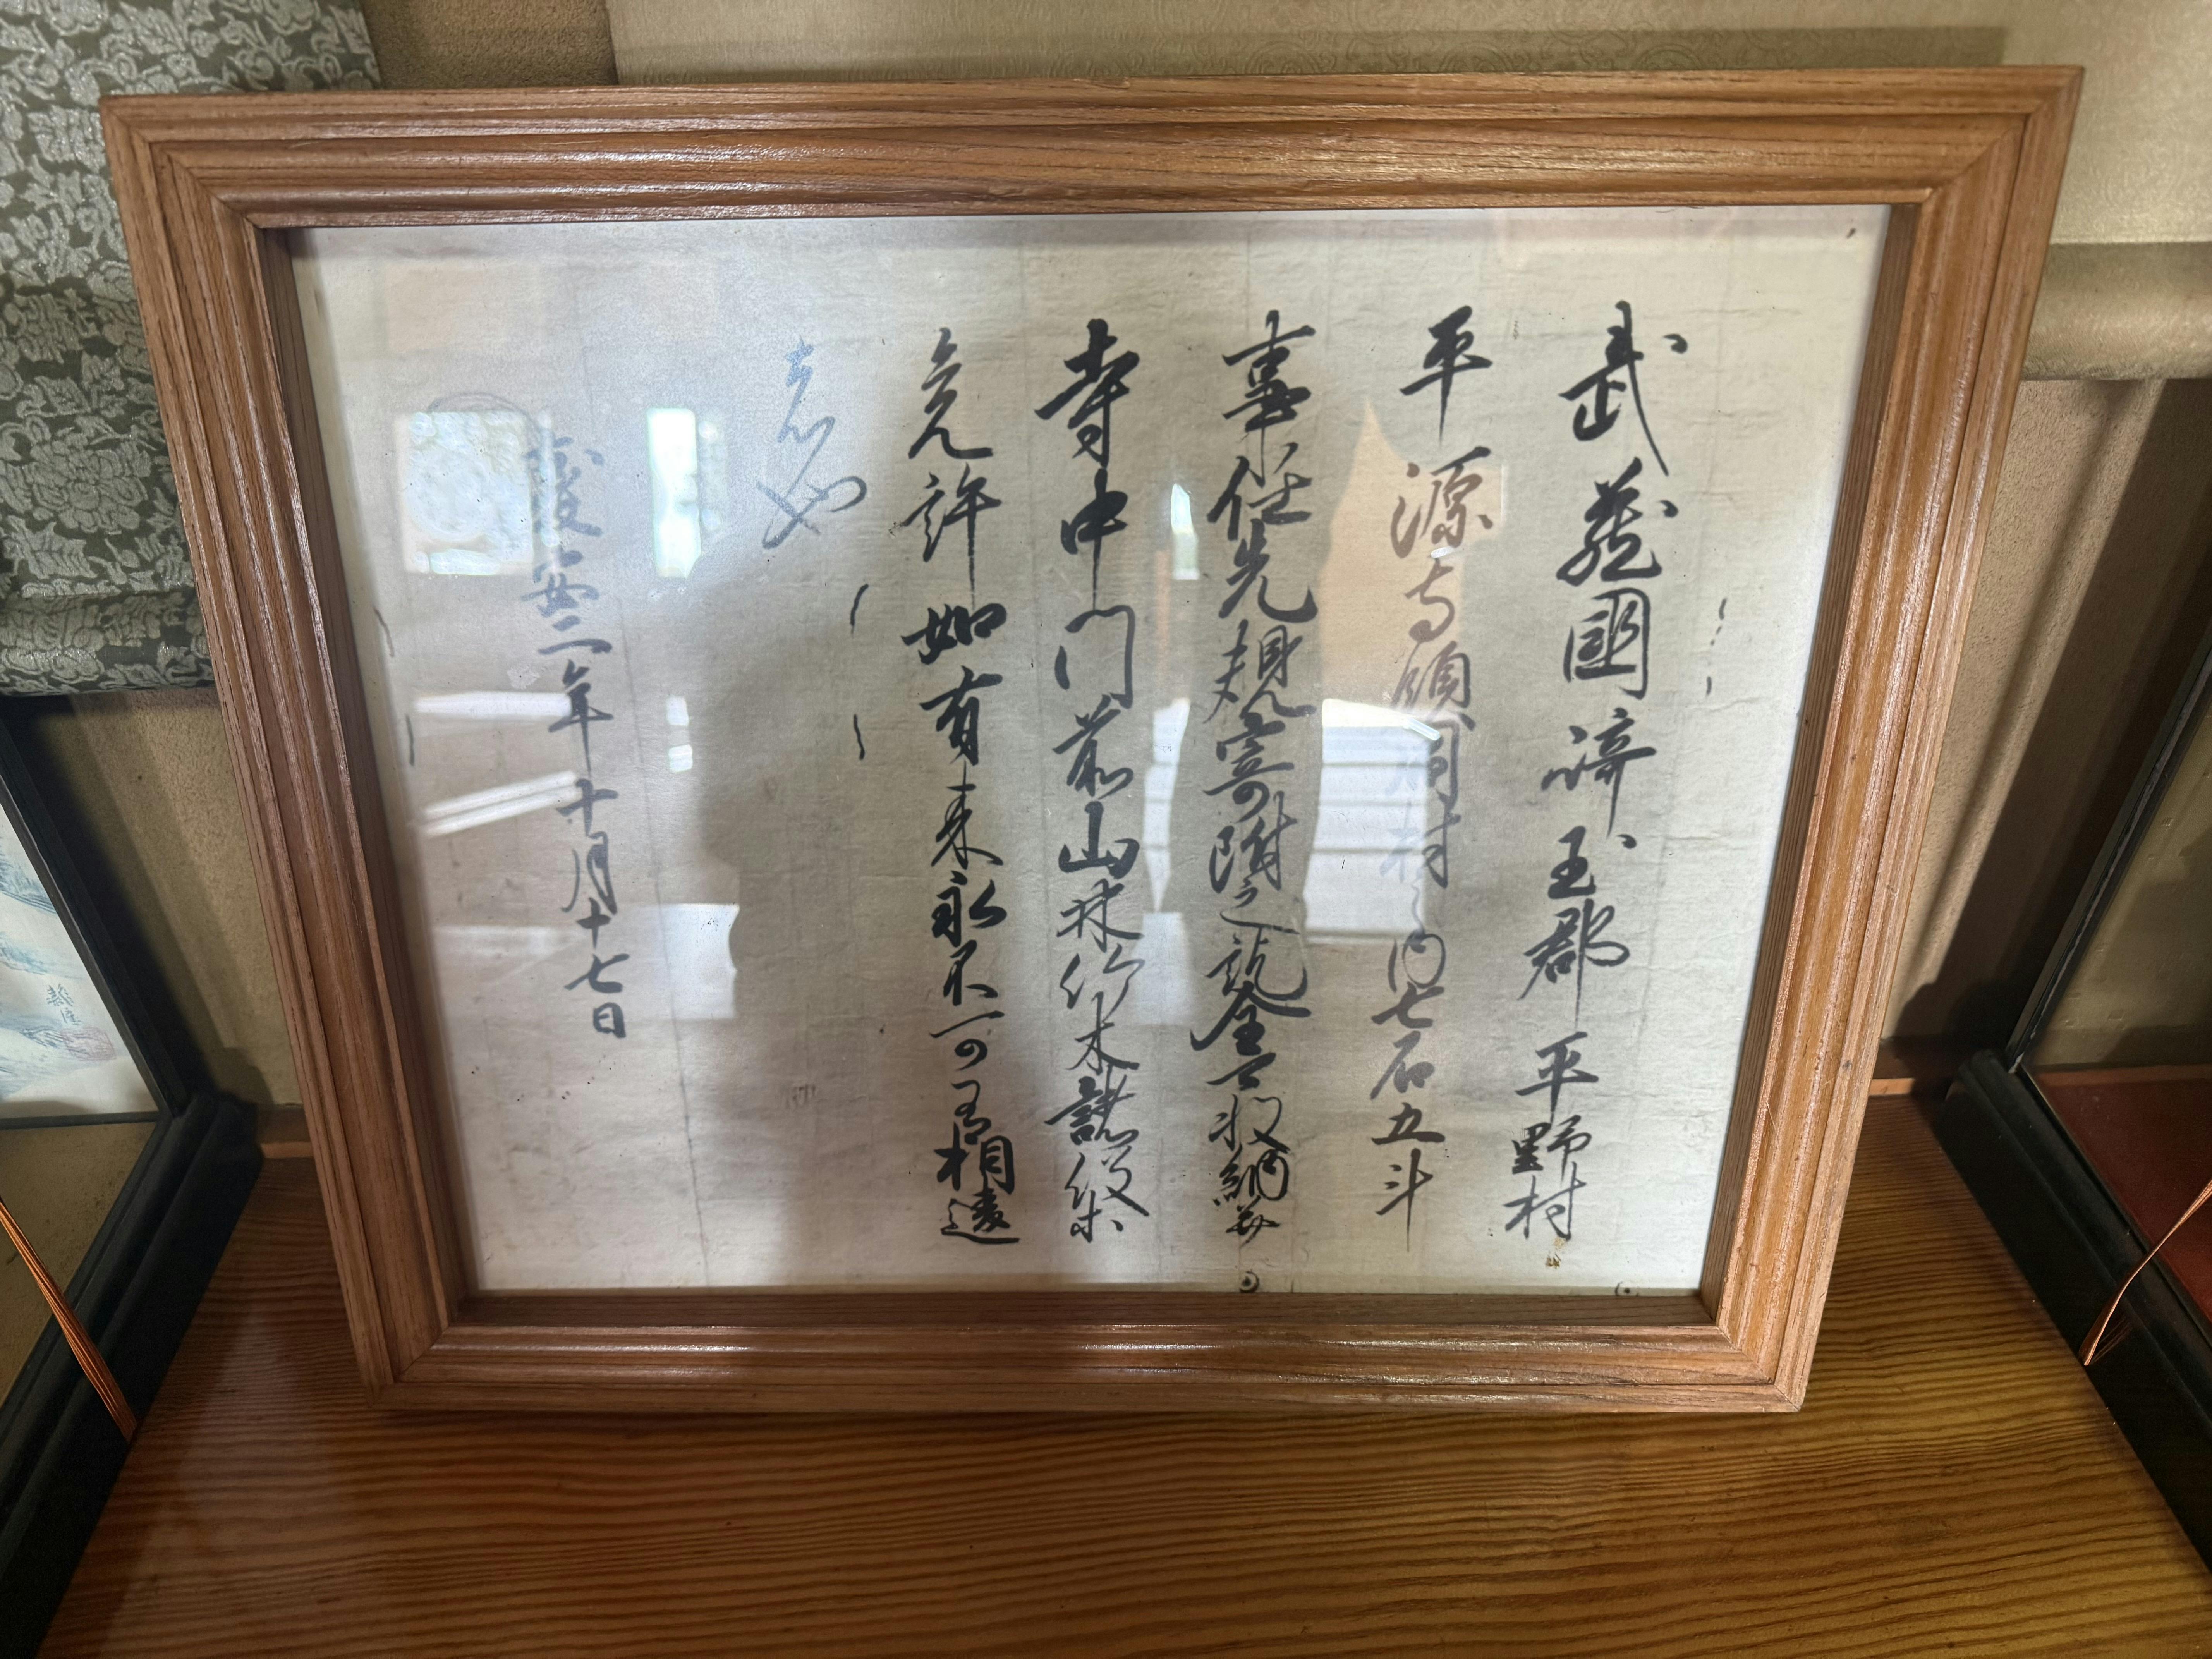 武蔵國埼玉郡平野村
平源寺領同村之内七石五斗
事任先規寄附之訖全可収納并
寺中門前山林竹木諸役等
免許如有来永不可有相違
者也
慶安二年十月十七日